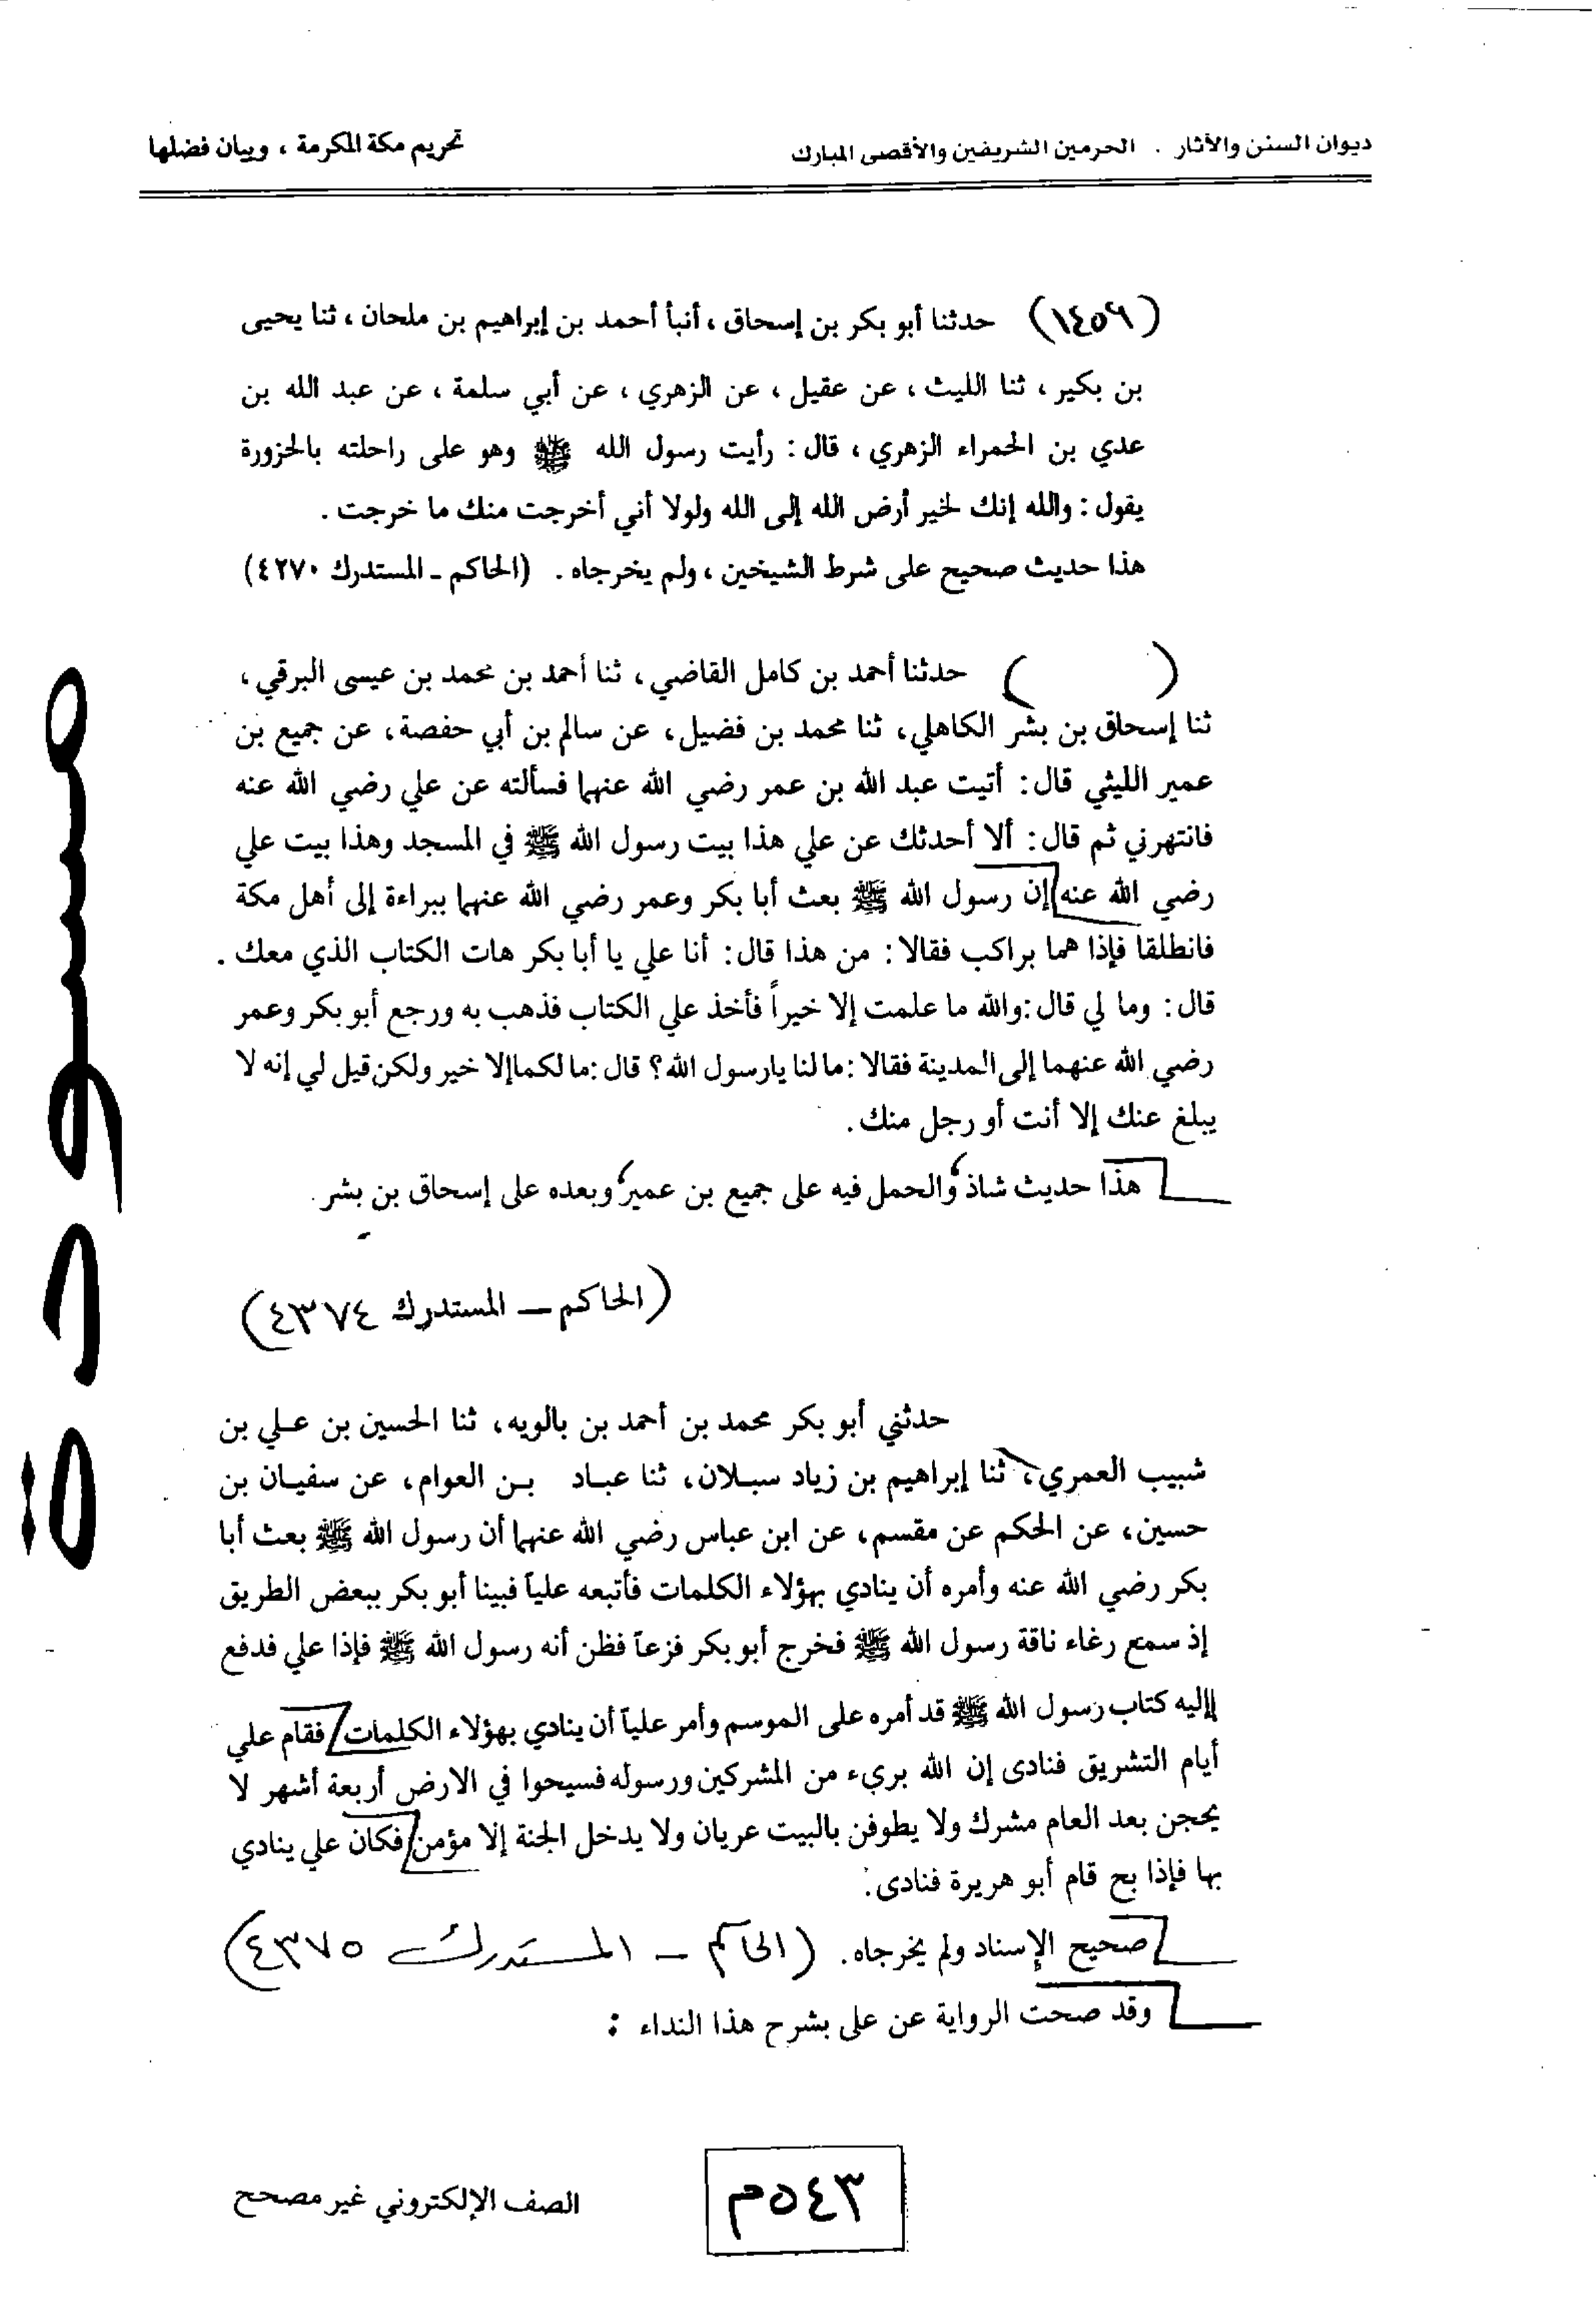 ديوان السنن والآثار . الحرمين الشريفين والأقصى المبارك
تحريم مكة المكرمة ، وبيان فضلها
(١٤٥٩) حدثنا أبو بكر بن إسحاق ، أنبأ أحمد بن إبراهيم بن ملحان ، ثنا يحيى
بن بكير ، ثنا الليث ، عن عقيل ، عن الزهري ، عن أبي سلمة ، عن عبد الله بن
عدي بن الحمراء الزهري ، قال : رأيت رسول الله ﷺ وهو على راحلته بالحزورة
يقول : والله إنك لخير أرض الله إلى الله ولولا أني أخرجت منك ما خرجت .
هذا حديث صحيح على شرط الشيخين ، ولم يخرجاه . (الحاكم ـ المستدرك ٤٢٧٠)
( ) حدثنا أحمد بن كامل القاضي ، ثنا أحمد بن محمد بن عيسى البرقي ،
ثنا إسحاق بن بشر الكاهلي، ثنا محمد بن فضيل، عن سالم بن أبي حفصة، عن جميع بن
عمير الليثي قال: أتيت عبد الله بن عمر رضي الله عنهما فسألته عن علي رضي الله عنه
فانتهرني ثم قال: ألا أحدثك عن علي هذا بيت رسول الله ﷺ في المسجد وهذا بيت علي
رضي الله عنه إن رسول الله ﷺ بعث أبا بكر وعمر رضي الله عنهما ببراءة إلى أهل مكة
فانطلقا فإذا هما براكب فقالا: من هذا قال: أنا علي يا أبا بكر هات الكتاب الذي معك .
قال: وما لي قال :والله ما علمت إلا خيراً فأخذ علي الكتاب فذهب به ورجع أبو بكر وعمر
رضي الله عنهما إلى المدينة فقالا :ما لنا يارسول الله؟ قال :ما لكما إلا خير ولكن قيل لي إنه لا
يبلغ عنك إلا أنت أو رجل منك.
هذا حديث شاذ والحمل فيه على جميع بن عمير وبعده على إسحاق بن بشر.
(الحاكم ــ المستدرك ٤٣٧٤)
حدثني أبو بكر محمد بن أحمد بن بالويه، ثنا الحسين بن علي بن
شبيب العمري، ثنا إبراهيم بن زياد سبلان، ثنا عباد بن العوام، عن سفيان بن
حسين، عن الحكم عن مقسم، عن ابن عباس رضي الله عنهما أن رسول الله ﷺ بعث أبا
بكر رضي الله عنه وأمره أن ينادي بهؤلاء الكلمات فأتبعه علياً فبينا أبو بكر ببعض الطريق
إذ سمع رغاء ناقة رسول الله ﷺ فخرج أبو بكر فزعاً فظن أنه رسول الله ﷺ فإذا علي فدفع
إليه كتاب رسول الله ﷺ قد أمره على الموسم وأمر علياً أن ينادي بهؤلاء الكلمات فقام علي
أيام التشريق فنادى إن الله بريء من المشركين ورسوله فسيحوا في الارض أربعة أشهر لا
يحجن بعد العام مشرك ولا يطوفن بالبيت عريان ولا يدخل الجنة إلا مؤمن فكان علي ينادي
بها فإذا بح قام أبو هريرة فنادى.
صحيح الإسناد ولم يخرجاه. (الحاكم ــ المستدرك ٤٣٧٥)
وقد صحت الرواية عن على بشرح هذا النداء :
٥٤٣م
الصف الإلكتروني غير مصحح
مسودة